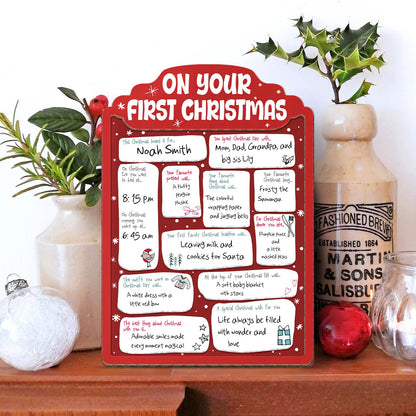 ON YOUR
FIRST CHRISTMAS
This Christmas board is for...
Noah Smith
You spent Christmas Day with...
Mom, Dad, Grandpa, and
big sis Lily
On Christmas
Eve you went
to bed at...
8:15 pm
On Christmas
morning you
woke up at...
6:45 am
Your favourite
present was...
A fluffy
penguin
plushie
Your favourite
thing about
Christmas was...
The colorful
wrapping paper
and jingling bells
Your favourite
Christmas song...
Frosty the
Snowman
For Christmas
dinner you ate...
Pumpkin puree
and a
little mashed
peas
Your first family Christmas tradition was...
Leaving milk and
cookies for Santa
The outfit you wore on
Christmas Day was...
A white dress with a
little red bow
At the top of your Christmas list was...
A soft baby blanket
with stars
The best thing about Christmas
with you is...
Adorable smiles made
every moment magical
A special Christmas wish for you...
Life always be filled
with wonder and
love
FASHIONED BREW
ESTABLISHED 1864
MARTIN
& SONS
SALISBU